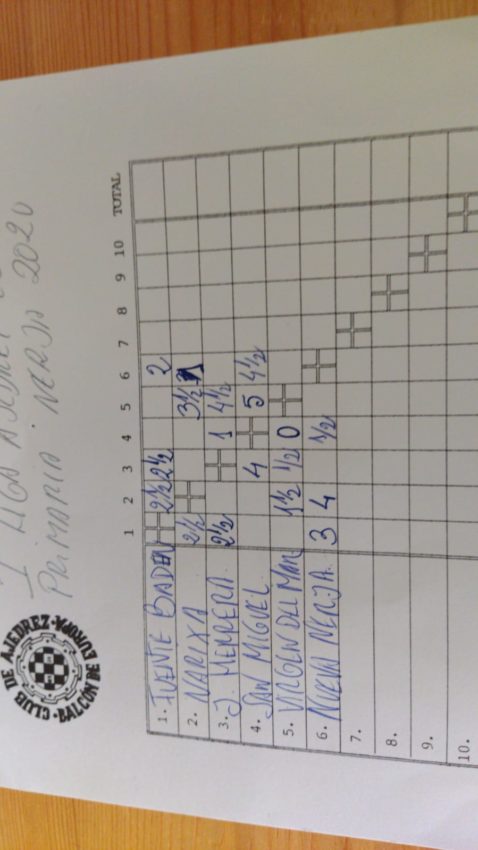 CLUB DE AJEDREZ
BALCÓN DE EUROPA
I LIGA AJEDREZ
PRIMARIA NERJA 2020
1 2 3 4 5 6 7 8 9 10 TOTAL
1. FUENTE BADEN 2½ 2½ 2
2. NARIXA 2½ 3½
3. J. HERRERA 2½ 1 4½
4. SAN MIGUEL 4 5 4½
5. VIRGEN DEL MAR 1½ ½ 0
6. NUEVA NERJA 3 4 ½
7.
8.
9.
10.